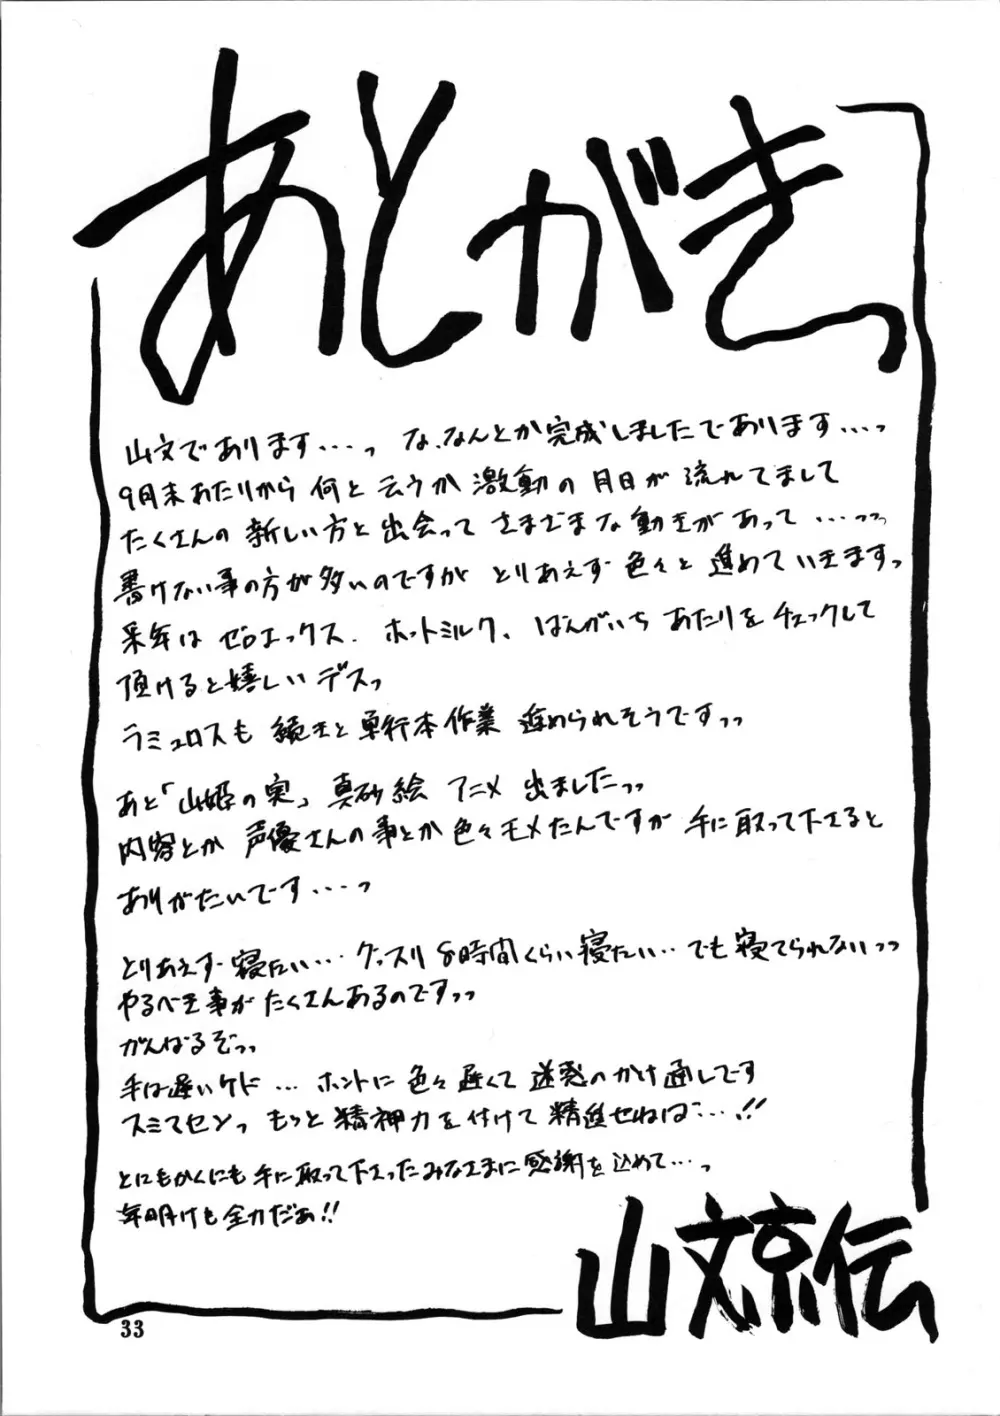 あとがきっ
山文であります・・・っ な、なんとか完成しましたであります・・・っ
9月末あたりから 何と云うか 激動の月日が 流れてまして
たくさんの 新しい方と出会って さまざまな動きがあって・・・っっ
書けない事の方が多いのですが とりあえず 色々と 進めていきますっ
来年は ゼロエックス、ホットミルク、ばんがいち あたりを チェックして
頂けると嬉しいデスっ
ラミュロスも 続きと 単行本作業 進められそうですっっ
あと「山姫の実」真砂絵 アニメ 出ましたっっ
内容とか 声優さんの事とか 色々モメたんですが 手に取って下さると
ありがたいです・・・っ
とりあえず 寝たい・・・グッスリ 8時間くらい 寝たい・・でも 寝てられないっっ
やるべき事が たくさんあるのですっっ
がんばるぞっっ
手は遅いケド・・・ホントに 色々 遅くて 迷惑のかけ通しです
スミマセンっ もっと 精神力を付けて 精進せねば・・・!!
とにもかくにも 手に取って下さったみなさまに 感謝を込めて・・・っ
年明けも全力だぁ!!
山文京伝
33